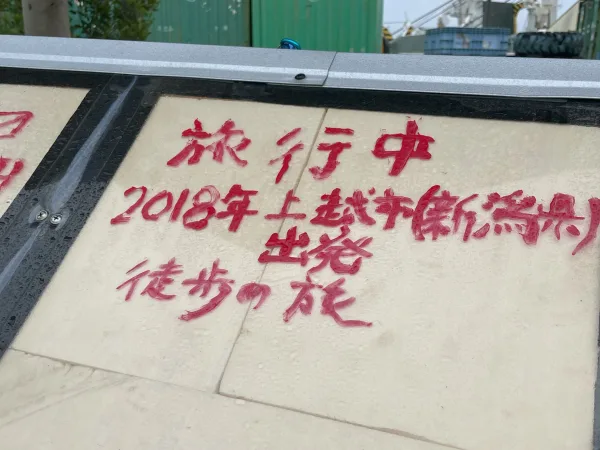 旅行中
2018年上越市(新潟県)
出発
徒歩の旅